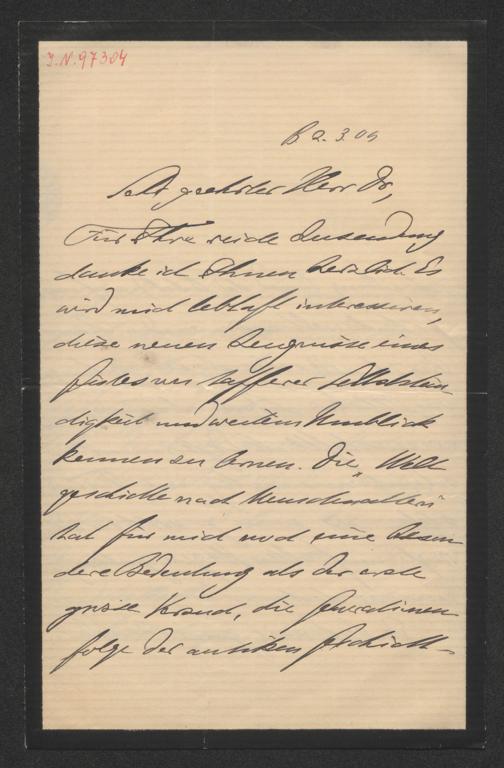 I.N. 97304
B 2. 3. 09
Sehr geehrter Herr Dr,
Für Ihre reiche Zusendung
danke ich Ihnen herzlich. Es
wird mich lebhaft interessieren,
diese neuen Zeugnisse eines
Geistes von tapferer Selbststän-
digkeit und weitem Umblick
kennen zu lernen. Die „Welt
geschichte nach Menschenaltern"
hat für mich noch eine beson-
dere Bedeutung als der erste
grosse Versuch, die Generationen
folge der antiken Geschicht-